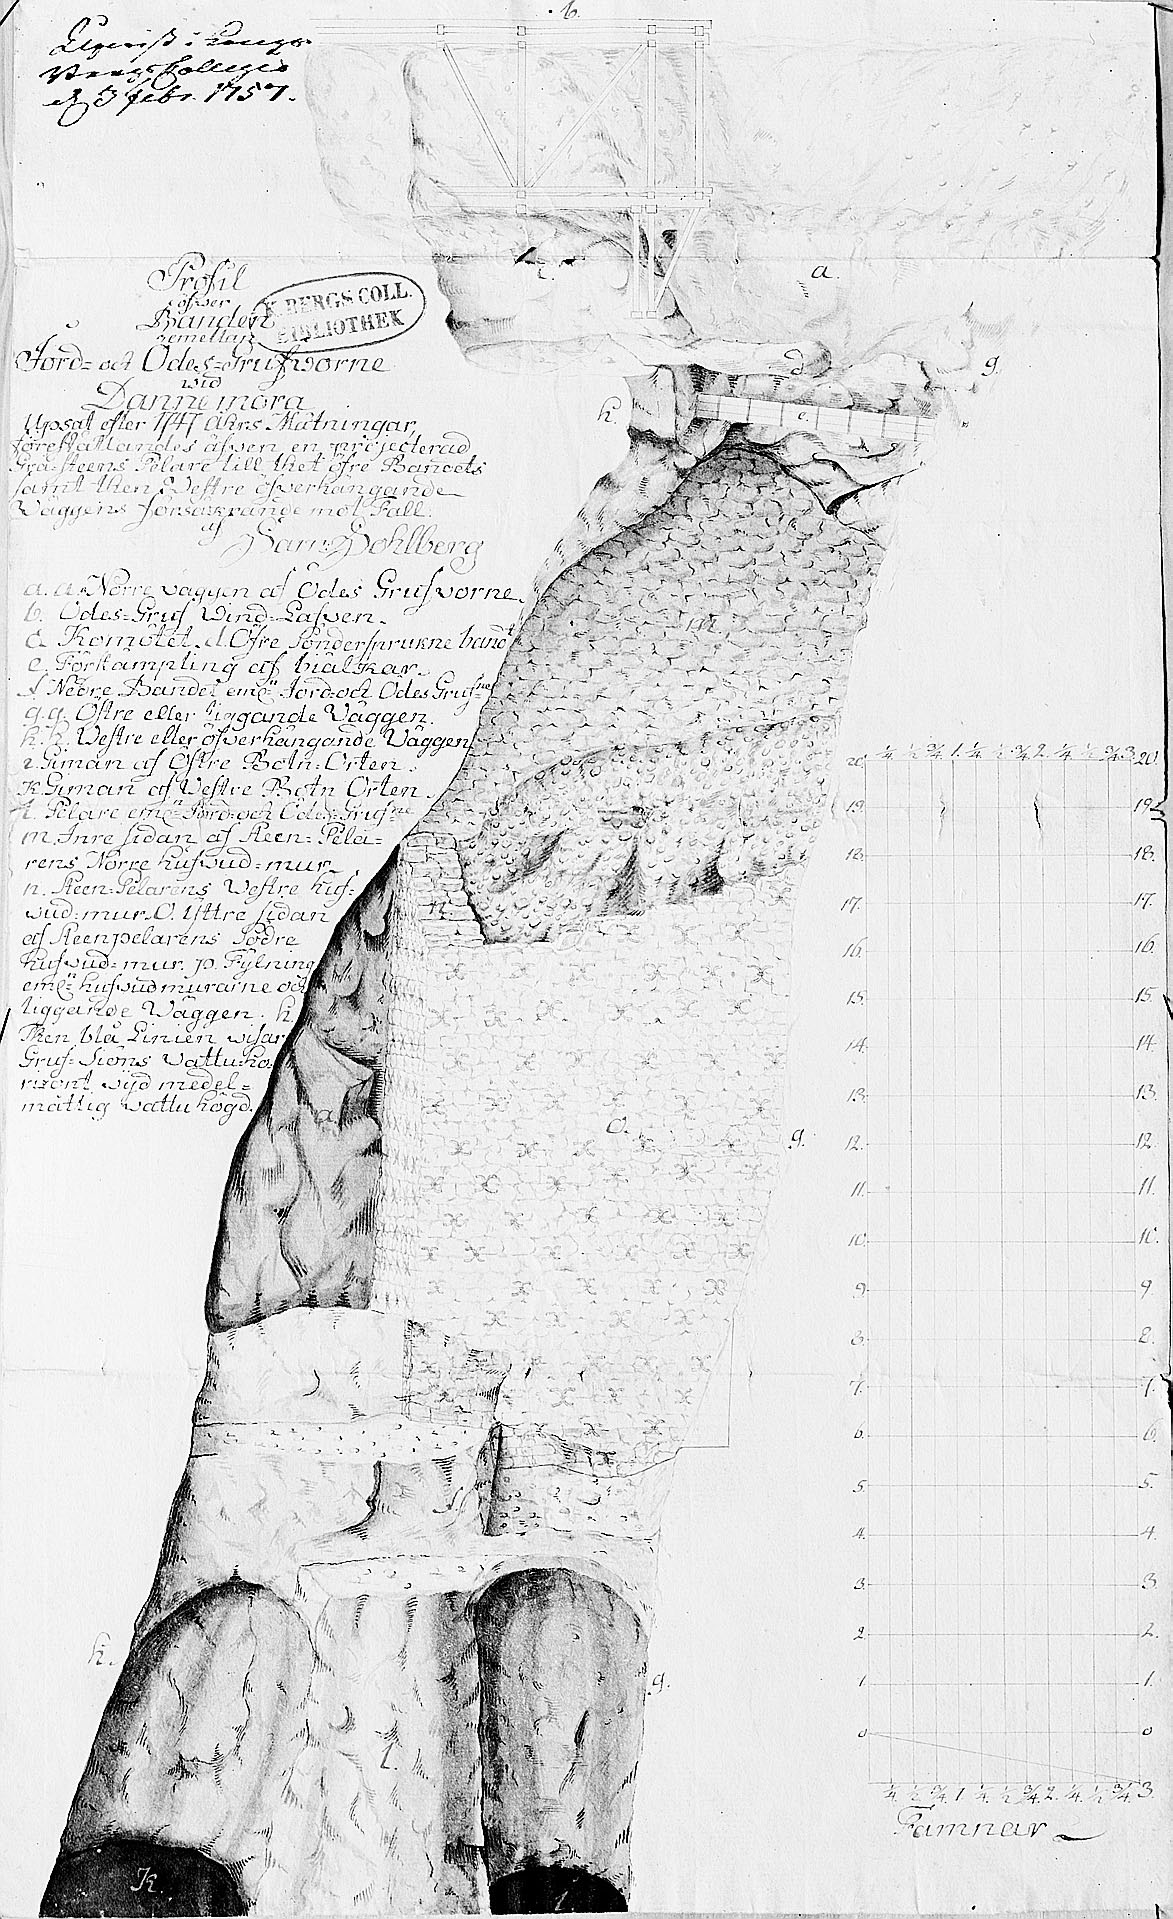 i Kongr
Bergs Collegio
d 3 febr. 1757.
b.
Profil
öfwer
Banden
emellan
Jord- och Ödes-Grufworne
wid
Dannemora
Upsat efter 1747 åhrs Mätningar,
förestållandes äfwen en projecterad
Grå-steens Pelare till thet öfre Bandets
samt then Westre öfwerhängande
Wäggens försäkrande mot Fall.
af
Sam: Sohlberg
K. BERGS COLL.
BIBLIOTHEK
a. a. Norre väggen af Ödes Grufvorne.
b. Ödes-Gruf Wind-Lafven.
c. Komötet. d. Öfre sönderspruckne bandt
e. Förkampling af biälkar.
f. Nedre Bandet em: Jord- och Ödes Grufne
g. g. Östre eller liggande Väggen.
h. h. Westre eller öfverhängande Väggen
i. Giman af Östre Botn-Orten.
K. Giman af Westre Botn Orten.
l. Pelare em: Jord- och Ödes-Grufne
m. Inre sidan af Steen-Pela-
rens Norre hufvud-mur
n. Steen-Pelarens Westre huf-
vud-mur. O. Yttre sidan
af Steenpelarens Södre
hufvud-mur. p. Fylning
em: hufvudmurarne och
liggande Väggen. h.
Then blå Linien wisar
Gruf-Siöns Vattu-ho-
rizont wid medel-
måttig vattu högd.
a.
d
g.
h.
e.
m.
n.
f
a
O.
g.
h.
g.
l.
K.
i.
¼ ½ ¾ 1 ¼ ½ ¾ 2 ¼ ½ ¾ 3
20 20
19 19
18. 18.
17. 17.
16. 16.
15. 15.
14. 14.
13. 13.
12. 12.
11. 11.
10. 10.
9. 9.
8. 8.
7. 7.
6. 6.
5. 5.
4. 4.
3. 3.
2. 2.
1 1.
0 0
¼ ½ ¾ 1 ¼ ½ ¾ 2 ¼ ½ ¾ 3.
Famnar